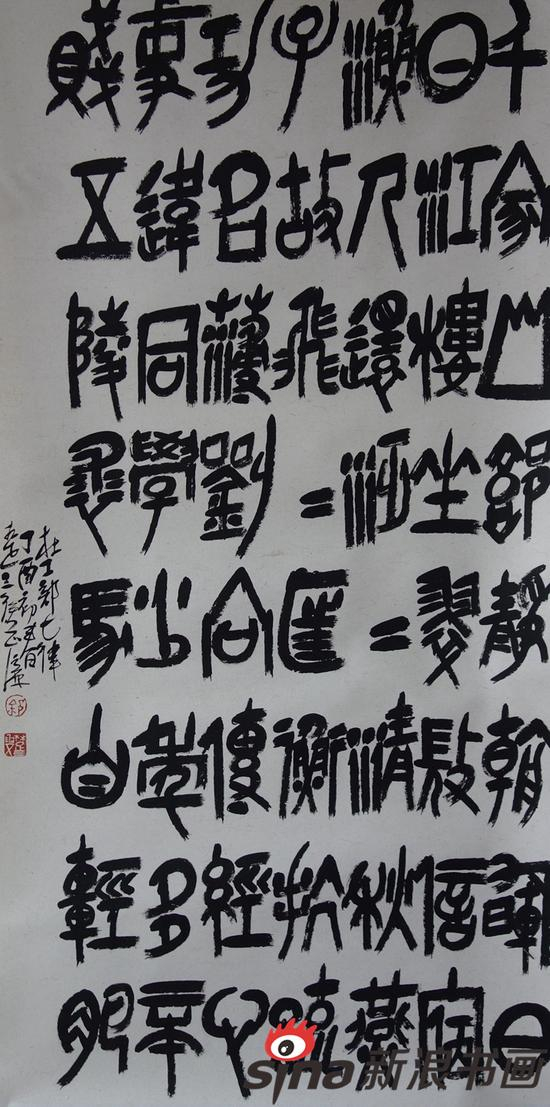 千家山郭静朝暉日
日江樓坐翠微信宿
漁人還泛=清秋燕
子故飛=匡衡抗疏
功名薄劉向傳經心
事違同學少年多不
賤五陵衣馬自輕肥
杜工部七律
丁酉初春
sina新浪书画